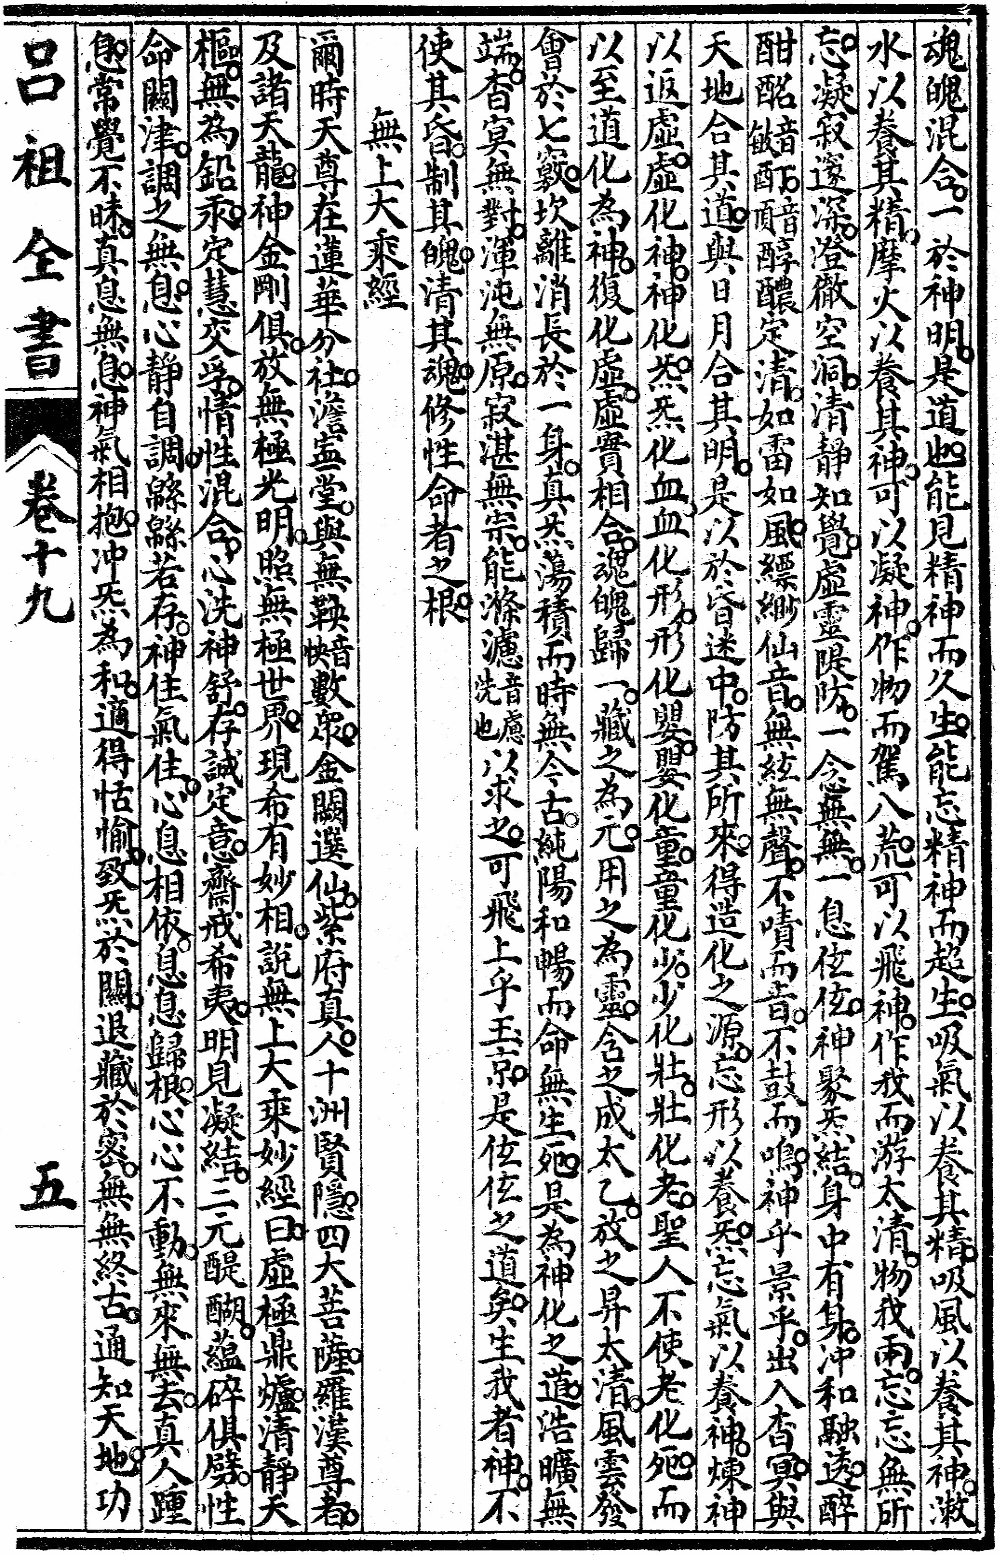 魂魄混合。一於神明。是道也。能見精神而久生。能忘精神而超生。吸氣以養其精。吸風以養其神。漱
水以養其精。摩火以養其神。可以凝神。作物而駕八荒。可以飛神。作我而游太清。物我兩忘。忘無所
忘。凝寂邃深。澄徹空洞。清靜知覺。虛靈隄防。一念無無。一息伭伭。神聚炁結。身中有身。沖和融透。醉
酣酩音丁酩酊音頂醇醲。定清。如雷如風。縹緲仙音。無絃無聲。不嘖而音。不鼓而鳴。神乎景乎。出入杳冥。與
天地合其道。與日月合其明。是以於昏迷中。防其所來。得造化之源。忘形以養炁。忘氣以養神。煉神
以返虛。虛化神。神化炁。炁化血。血化形。形化嬰。嬰化童。童化少。少化壯。壯化老。聖人不使老化死。而
以至道化為神。復化虛。虛實相合。魂魄歸一。藏之為元。用之為靈。含之成太乙。放之昇太清。風雲發
會於七竅。坎離消長於一身。真炁蕩積。而時無今古。純陽和暢。而命無生死。是為神化之道。浩曠無
端。杳冥無對。渾沌無原。寂湛無宗。能滌濾音慮洗也以求之。可飛上乎玉京。是伭伭之道矣。生我者神。不
使其昏。制其魄。清其魂。修性命者之根。
無上大乘經
爾時天尊在蓮華分社。澹盍堂。與無鞅音怏數眾。金闕選仙。紫府真人。十洲賢隱。四大菩薩。羅漢尊者。
及諸天龍神金剛俱。放無極光明。照無極世界。現希有妙相。說無上大乘妙經。曰。虛極鼎爐。清靜天
樞。無為鉛汞。定慧交孚。情性混合。心洗神舒。存誠定意。齋戒希夷。明見凝結。三元醍醐。蘊碎俱劈。性
命關津。調之無息。心靜自調。緜緜若存。神住氣住。心息相依。息息歸根。心心不動。無來無去。真人踵
息。常覺不昧。真息無息。神氣相抱。沖炁為和。適得恬愉。致炁於關。退藏於密。無無終古。通知天地。功
呂祖全書
卷十九
五